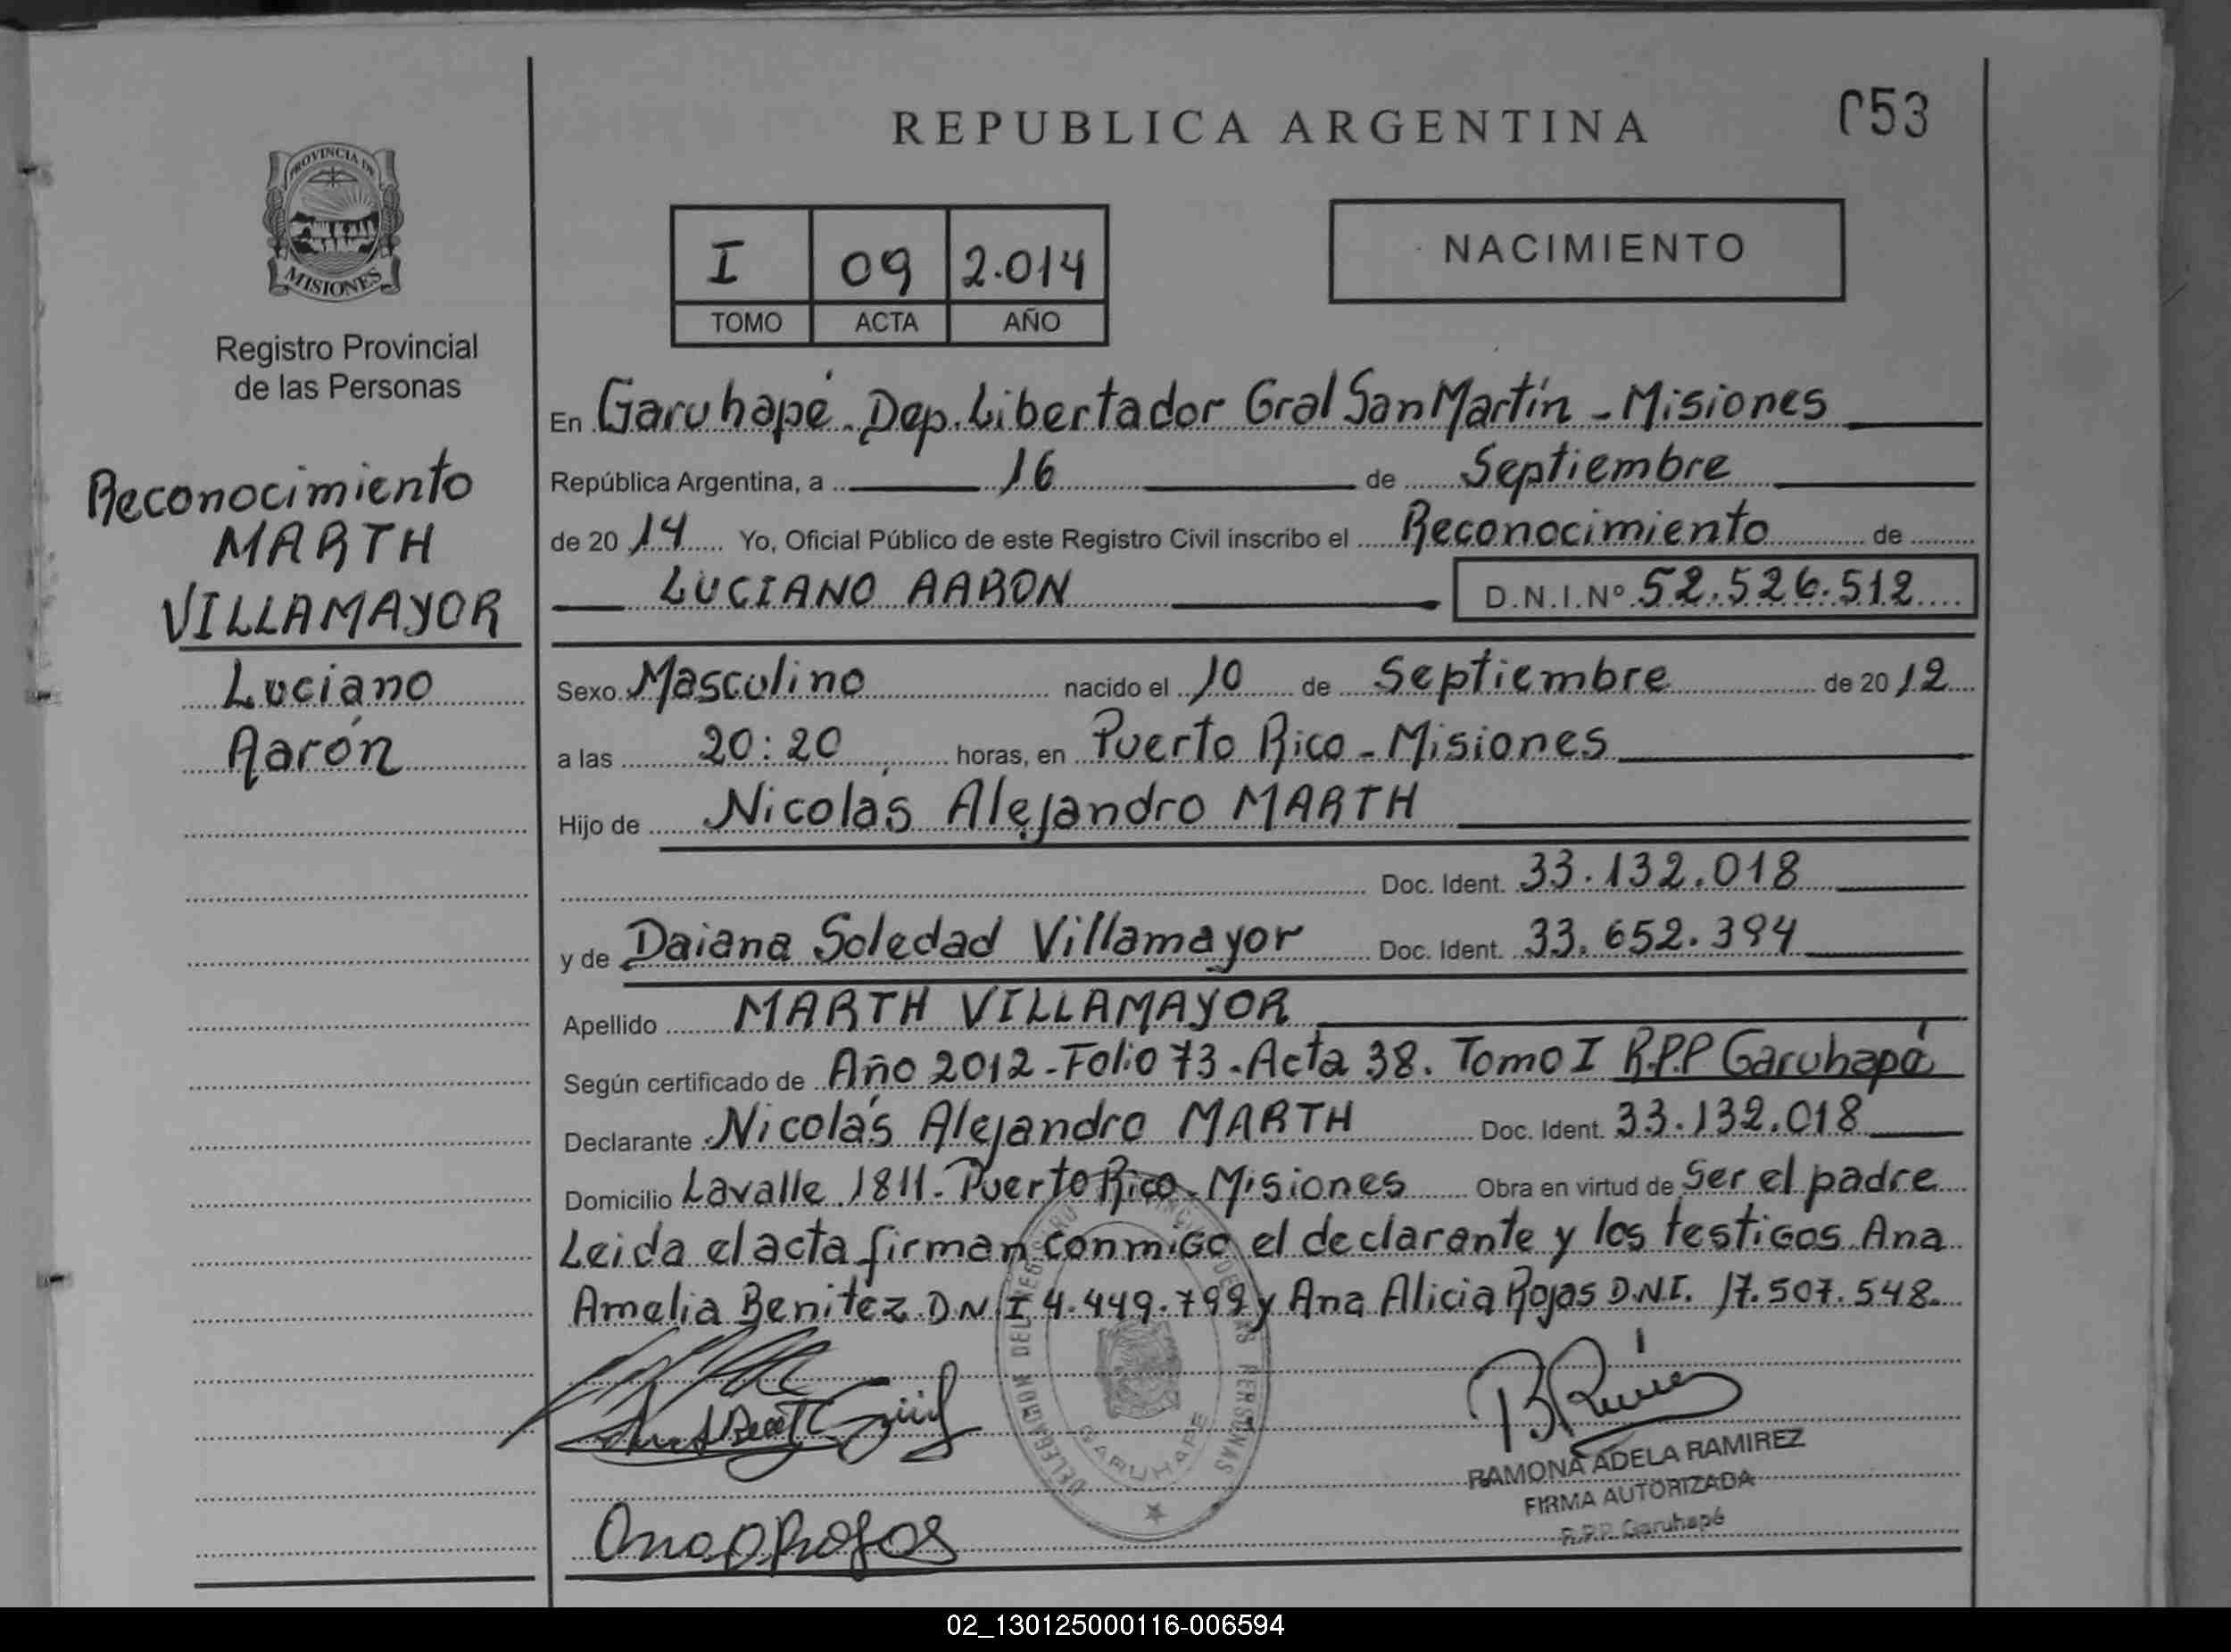 REPUBLICA ARGENTINA
053
PROVINCIA DE
MISIONES
Registro Provincial
de las Personas
Reconocimiento
MARTH
VILLAMAYOR
Luciano
Aarón
I 09 2.014
TOMO ACTA AÑO
NACIMIENTO
En Garuhapé - Dep. Libertador Gral San Martín - Misiones
República Argentina, a 16 de Septiembre
de 20 14 Yo, Oficial Público de este Registro Civil inscribo el Reconocimiento de
LUCIANO AARON D.N.I.Nº 52.526.512
Sexo Masculino nacido el 10 de Septiembre de 20 12
a las 20:20 horas, en Puerto Rico - Misiones
Hijo de Nicolás Alejandro MARTH
Doc. Ident. 33.132.018
y de Daiana Soledad Villamayor Doc. Ident. 33.652.394
Apellido MARTH VILLAMAYOR
Según certificado de Año 2012 - Folio 73 - Acta 38. Tomo I R.P.P Garuhapé
Declarante Nicolás Alejandro MARTH Doc. Ident. 33.132.018
Domicilio Lavalle 1811 - Puerto Rico - Misiones Obra en virtud de Ser el padre
Leida el acta firman conmigo el declarante y los testigos Ana
Amelia Benitez D.N.I 4.449.799 y Ana Alicia Rojas D.N.I. 17.507.548.
DELEGACION DEL REGISTRO PROVINCIAL DE LAS PERSONAS
GARUHAPE
RAMONA ADELA RAMIREZ
FIRMA AUTORIZADA
R.P.P. Garuhapé
02_130125000116-006594